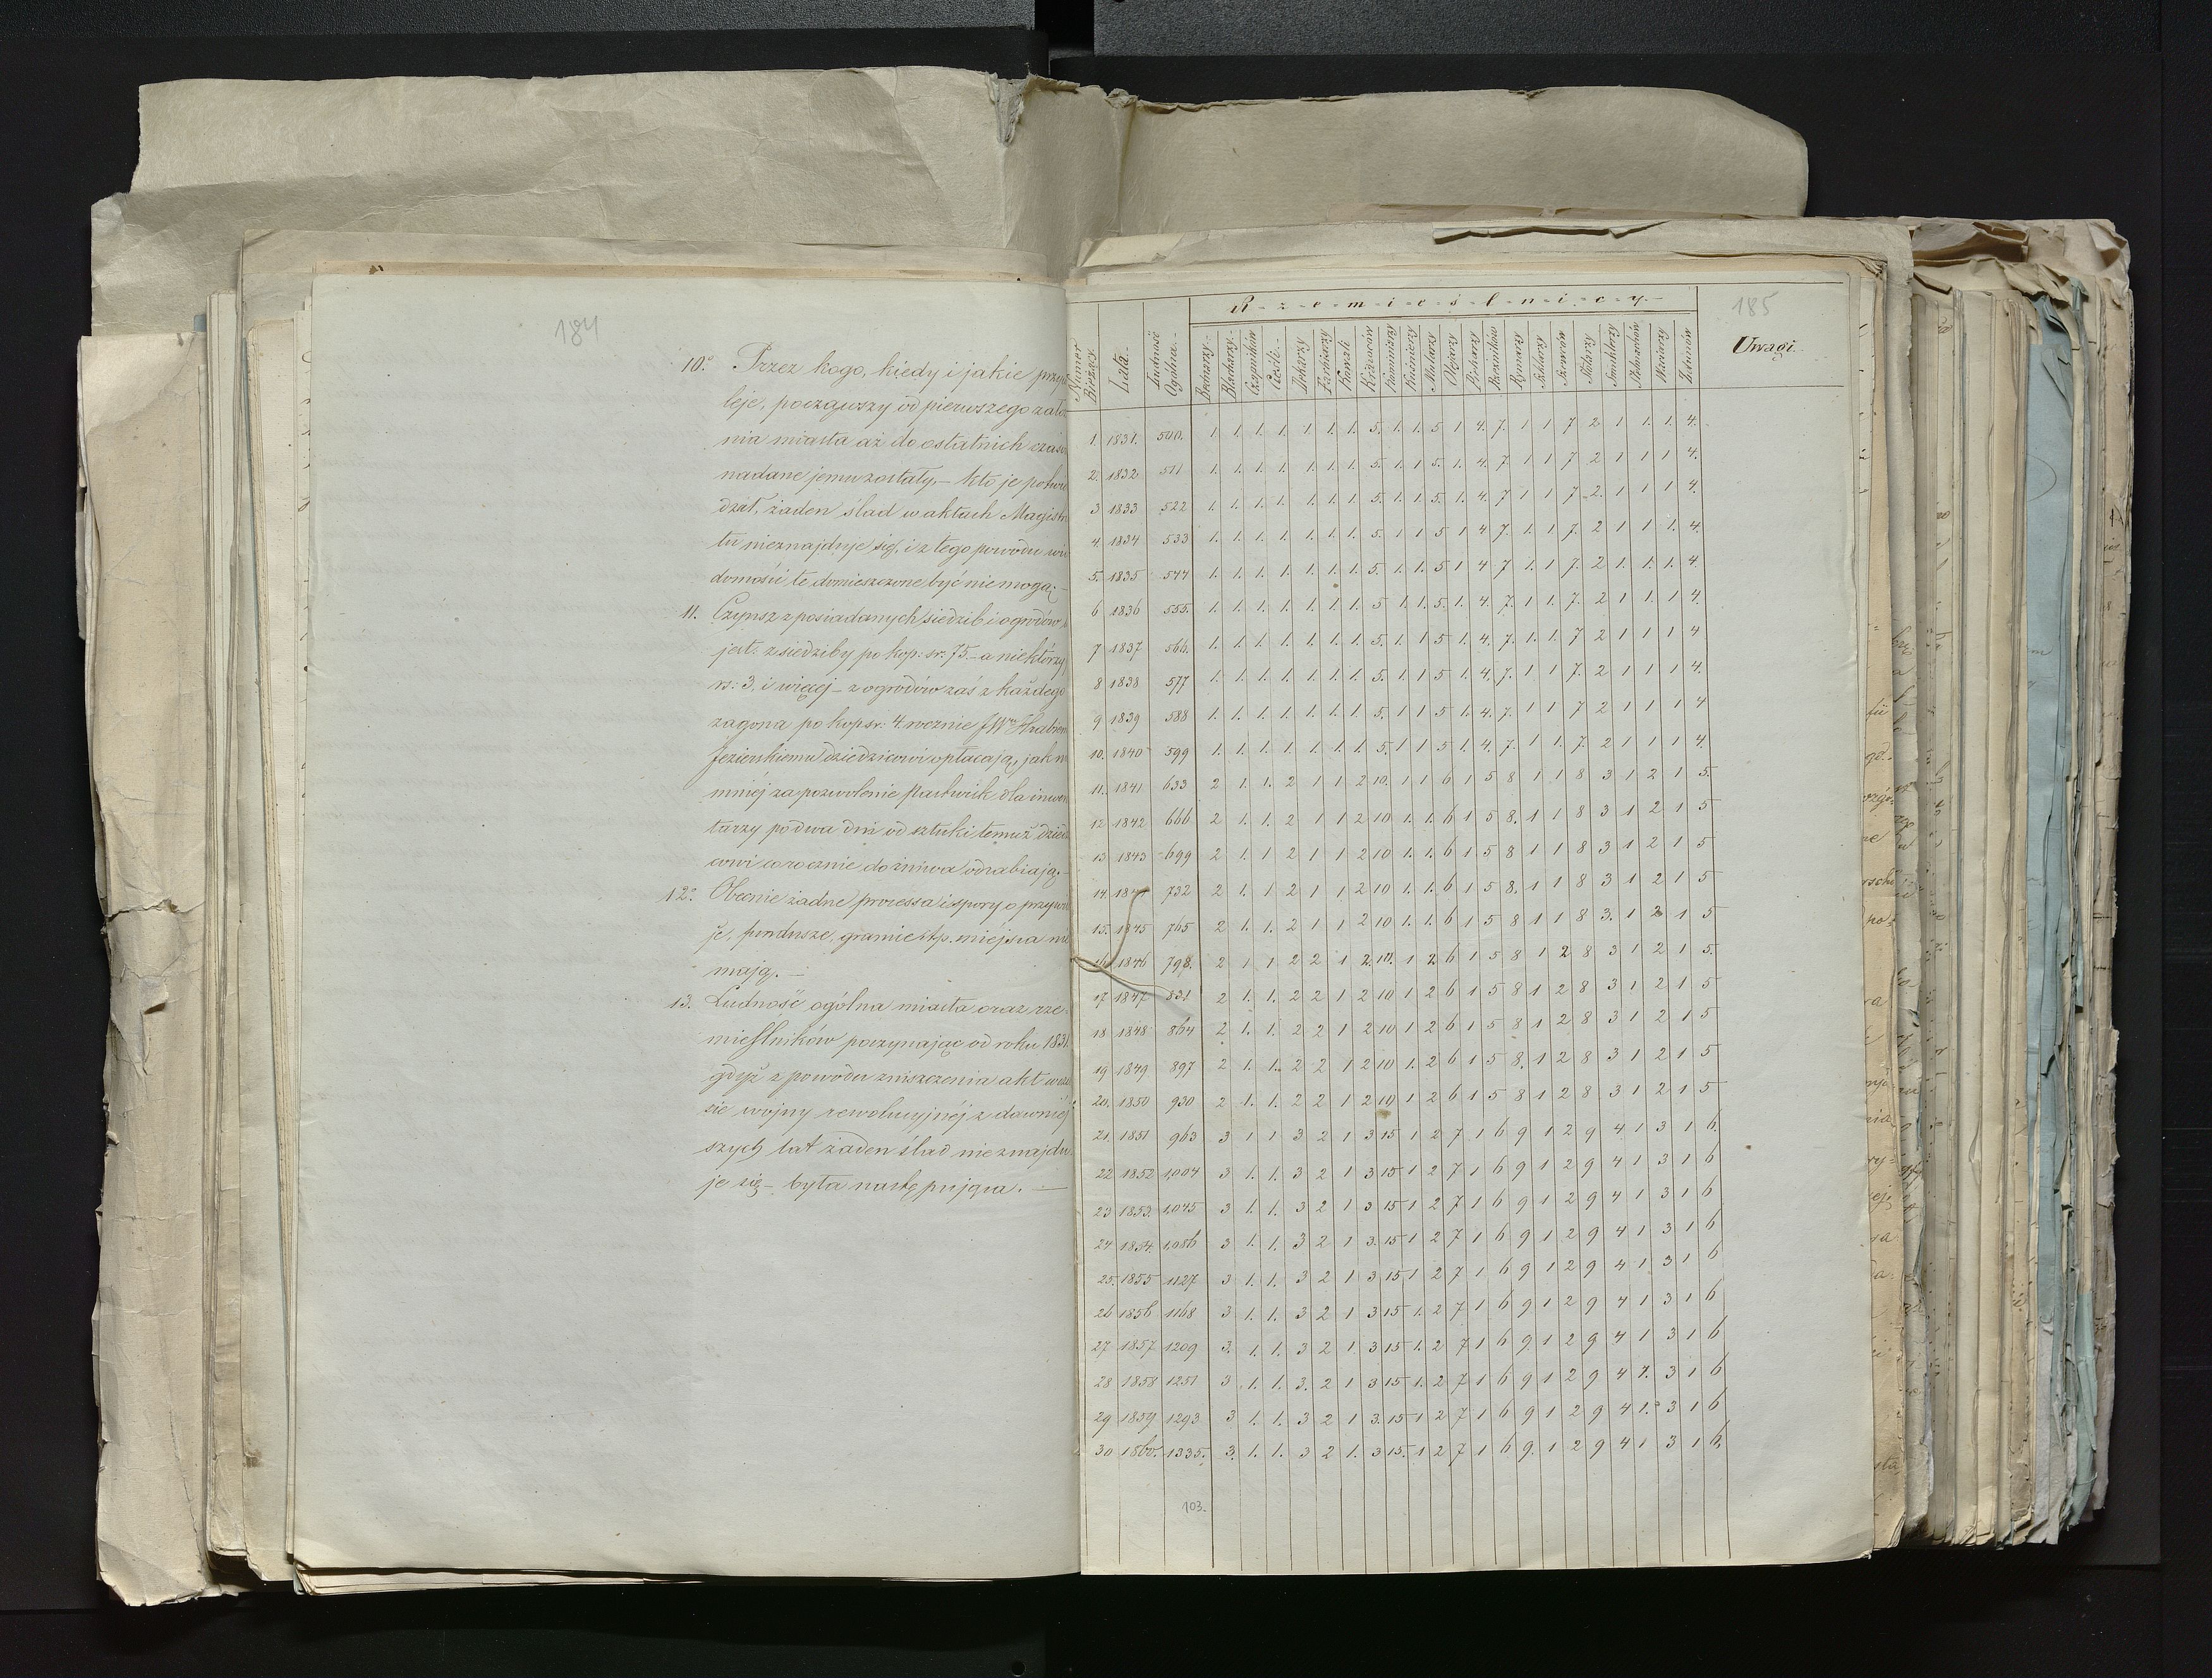 184
10.° Przez kogo, kiedy i jakie
leje, począwszy od pierwszego
nia miasta aż do ostatnich
nadane jemu zostały,- kto je
dzał, żaden ślad w aktach
tu nieznajduje się, i z tego powodu
domości te domieszczone być nie mogą.-
11. Czynsz z posiadanych siedzib i ogrodów
jest: z siedziby po kop: sr: 75.- a niektórzy
rs: 3, i więcej- z ogrodów zaś z każdego
zagona po kop sr: 4. rocznie
Jezierskiemu Dziedzicowi opłacają,
mniej za pozwolenie pastwisk dla
tarzy po dwa dni od sztuki temuż
cowi corocznie do żniwa odrabiają.-
12.° Obecnie żadne processa i spory o
je, fundusze, granice itp. miejsca
mają.-
13. Ludność ogólna miasta oraz rze-
mieślników poczynając od roku 1831.
gdyż z powodu zniszczenia akt
sie wojny rewolucyjnéj z dawniéj
szych lat żaden ślad nieznajdu-
je się- była następująca.-
185
Numer Bieżący. Lata. Ludność Ogólna. R-z-e-m-i-e-ś-l-n-i-c-y.- Uwagi.
Bednarzy. Blacharzy. Czapników Cieśli. Farbiarzy Kowali Kominiarzy Mularzy Olejarzy Piekarzy Rzezników Rymarzy Szklarzy Szewców Stolarzy
1. 1831. 500. 1. 1. 1. 1. 1. 1. 1. 5. 1. 1. 5 1 4. 7. 1 1 7 2 1 1. 1. 4.
2. 1832 511 1. 1. 1. 1. 1. 1. 1. 5. 1. 1 5. 1. 4. 7 1 1 7 2 1 1 1 4.
3 1833 522 1. 1. 1. 1. 1. 1. 1. 5. 1. 1 5. 1. 4. 7 1 1 7 2. 1 1 1 4.
4. 1834 533 1. 1. 1. 1. 1. 1. 1. 5. 1 1 5 1 4 7. 1. 1 7. 2 1 1 1. 4.
5. 1835 544 1. 1. 1. 1. 1. 1. 1. 5. 1. 1. 5 1 4 7 1. 1 7. 2 1. 1. 1. 4.
6 1836 555. 1. 1. 1. 1. 1. 1. 1. 5 1. 1. 5. 1. 4. 7. 1 1. 7. 2 1 1. 1 4.
7 1837 566. 1. 1. 1. 1. 1. 1. 1. 5. 1. 1 5 1. 4. 7. 1. 1. 7 2 1 1 1 4
8 1838 577 1. 1. 1. 1. 1. 1. 1. 5. 1. 1 5 1. 4. 7. 1 1 7. 2 1 1 1 4.
9 1839 588 1. 1. 1. 1. 1. 1. 1. 5. 1 1 5 1. 4. 7. 1 1 7 2 1 1 1 4
10. 1840 599 1. 1. 1. 1. 1. 1. 1. 5. 1 1 5 1. 4. 7. 1 1. 7. 2 1 1 1 4.
11. 1841 633 2 1. 1. 2 1 1 2 10. 1 1 6 1 5 8 1 1 8 3 1 2 1 5.
12 1842 666 2 1. 1. 2 1 1 2 10 1. 1. 6 1 5 8. 1 1 8 3 1 2 1 5
13 1843 699 2 1. 1 2 1 1 2 10 1. 1. 6 1 5 8 1 1 8 3 1 2 1 5
14. 184 732 2 1. 1 2 1 1 2 10 1. 1. 6 1 5 8. 1 1 8 3 1 2 1 5
15. 1845 765 2 1. 1. 2 1 1 2 10 1. 1. 6 1 5 8 1 1 8 3. 1 2 1 5
16 1846 798. 2 1 1 2 2 1 2 10. 1 2 6 1 5 8 1 2 8 3 1 2 1 5.
17 1847 831 2 1. 1. 2 2 1 2 10 1 2 6 1 5 8 1 2 8 3 1 2 1 5
18 1848 864 2 1. 1. 2 2 1 2 10 1 2 6 1 5 8 1 2 8 3 1 2 1 5
19 1849 897 2 1. 1. 2 2 1 2 10 1. 2 6 1 5 8. 1 2 8 3 1 2 1 5
20. 1850 930 2 1. 1. 2 2 1 2 10 1 2 6 1 5 8 1 2 8 3 1 2 1 5
21. 1851 963 3 1 1 3 2 1 3 15 1 2 7 1 6 9 1 2 9 4 1 3 1 6
22 1852 1,004 3 1. 1. 3 2 1 3 15 1 2 7 1 6 9 1 2 9 4 1 3 1 6
23 1853. 1,045 3 1. 1. 3 2 1 3 15 1 2 7 1 6 9 1 2 9 4 1 3 1 6
24 1854. 1,086 3 1. 1. 3 2 1 3. 15 1 2 7 1 6 9 1 2 9 4 1 3 1 6
25. 1855 1127 3 1. 1. 3 2 1 3 15 1 2 7 1 6 9 1 2 9 4 1 3 1 6
26 1856 1168 3 1. 1. 3 2 1 3 15 1. 2 7 1 6 9 1 2 9 4 1 3 1 6
27 1857 1209 3. 1. 1. 3 2 1. 3 15 1. 2 7 1 6 9. 1 2 9 4 1. 3 1 6
28 1858 1251 3 1. 1. 3. 2 1 3 15 1. 2 7 1 6 9 1 2 9 4 1. 3 1 6
29 1859 1293 3 1. 1. 3 2 1 3. 15 1 2 7 1 6 9 1 2 9 4 1. 3 1 6
30 1860. 1335. 3. 1. 1. 3 2 1. 3 15. 1 2 7 1 6 9. 1 2 9 4 1 3 1 6.
103.